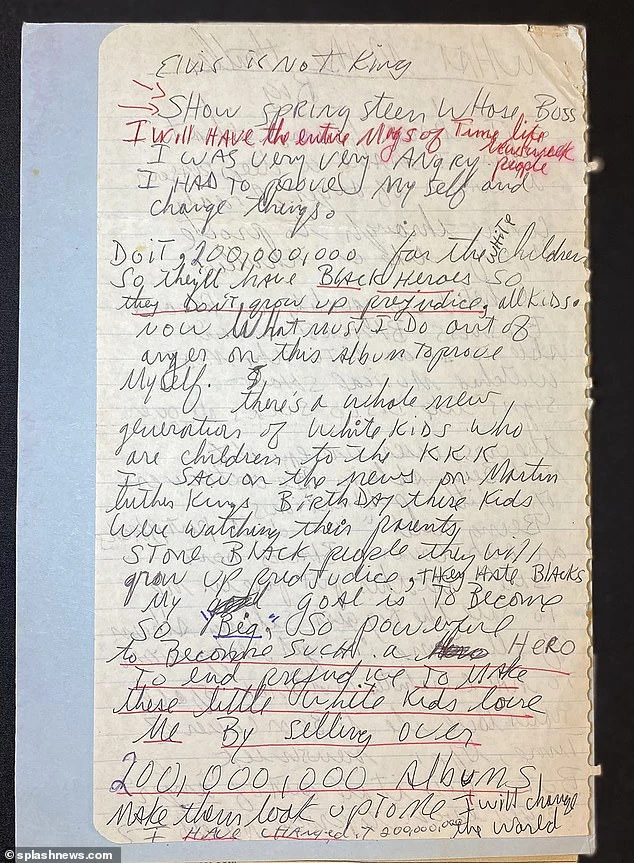 Elvis is Not King
SHow Springsteen WHose Boss
I will HAVE the entire Mags of Time life
newsweek
people
I was very very Angry.
I HAD To prove My self and
change things.
WHiTe
Do it, 200,000,000 for the children
So they'll have BlAck Heroes So
they Don't grow up prejudice, all KiDs.
now WHat must I Do out of
anger on this Album To prove
Myself.
there's a whole new
generation of White KiDs who
are children to the KKK
I SAW on the news on Martin
luther Kings BirthDAY these Kids
were watching their parents,
STone BlAck people they will
grow up prudjudice, THey Hate BlAcks
My goal is To Become
So "Big", So powerful
to Become Such a Hero
To end prejudice To MAke
these little white Kids love
Me By Selling over
200,000,000 AlbumS
MAke them look up To Me I will change
the world
I HAVE changed it 200,000,000
© splashnews.com